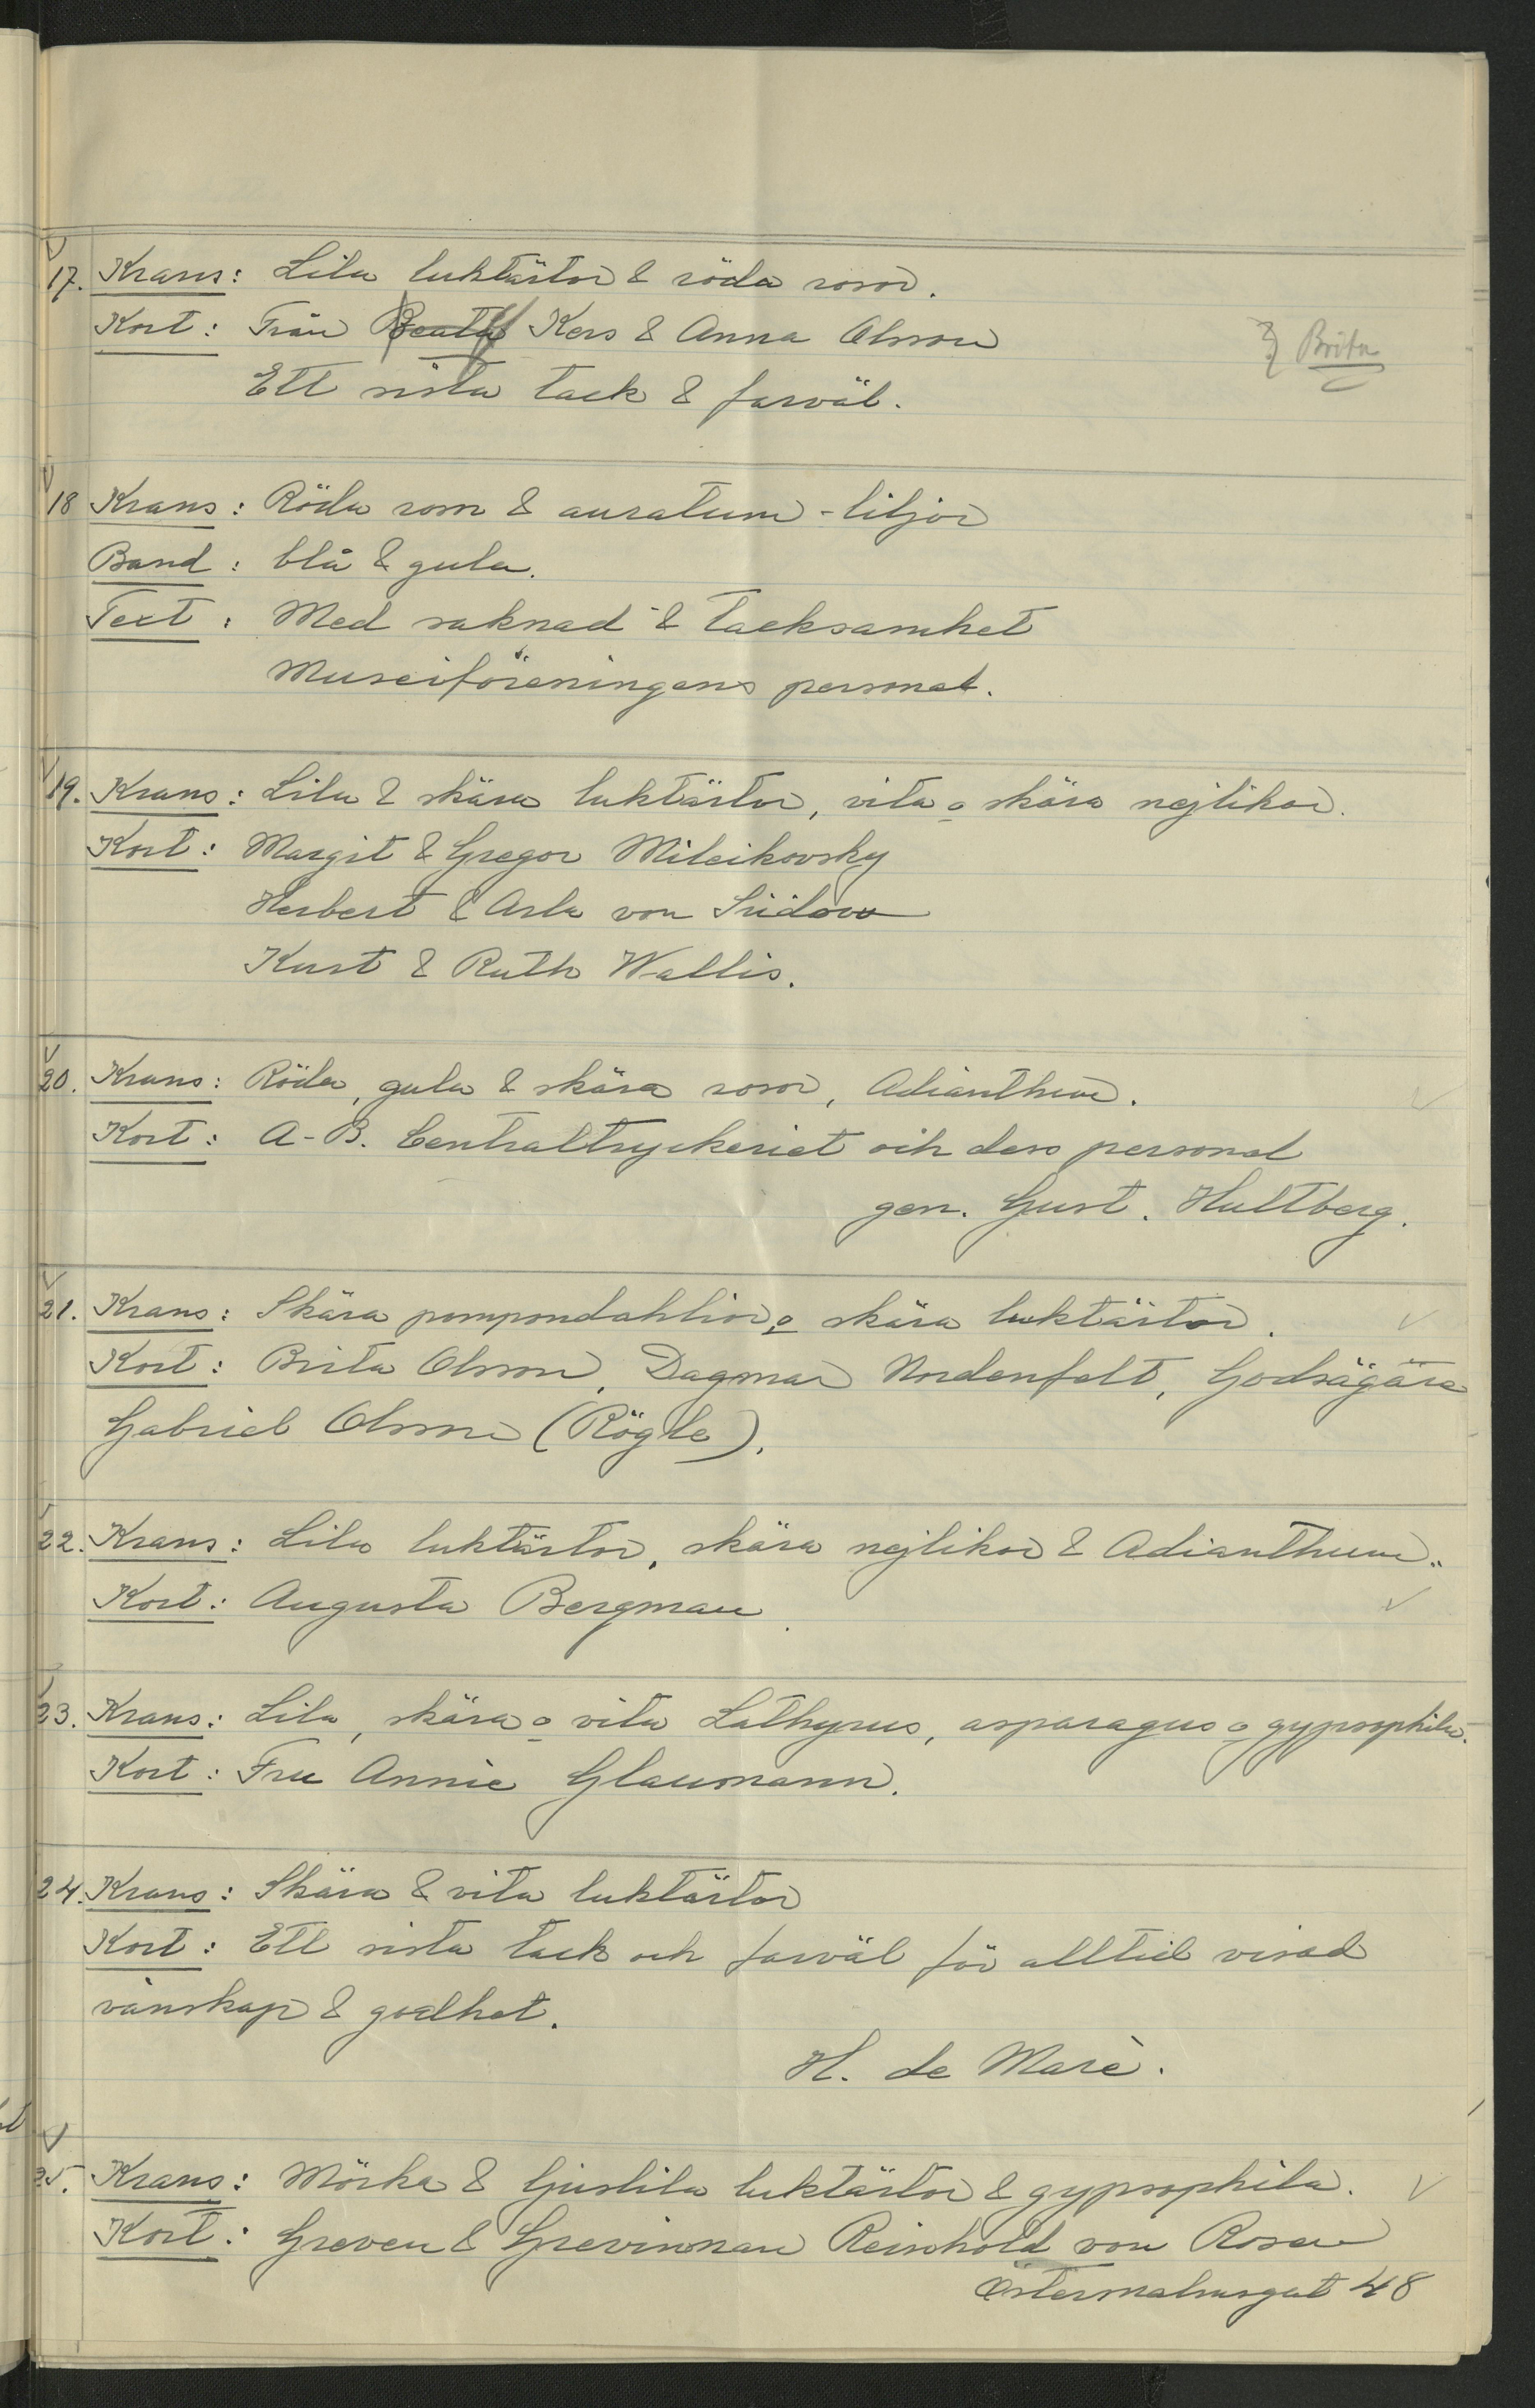 17. Krans: Lila luktärtor & röda rosor.
Kort: Från Beata Kers & Anna Olsson
} Brita
Ett sista tack & farväl.
18 Krans: Röda rosor & auratum-liljor
Band: blå & gula.
Text: Med saknad & tacksamhet
Museiföreningens personal.
19. Krans: Lila & skära luktärtor, vita o skära nejlikor.
Kort: Margit & Gregor Mileikovsky
Herbert & Asla von Südow
Kurt & Ruth Wallis.
20. Krans: Röda, gula & skära rosor, Adianthum.
Kort: A-B. Centraltryckeriet och dess personal
gen. Gust. Hultberg.
21. Krans: Skära pompondahlior o skära luktärtor.
Kort: Brita Olsson, Dagmar Nordenfelt, Godsägare
Gabriel Olsson (Rögle).
22. Krans: Lila luktärtor, skära nejlikor & Adianthum.
Kort: Augusta Bergman
23. Krans: Lila, skära o vita Lathyrus, asparagus o gypsophila.
Kort: Fru Annie Glaumann.
24. Krans: Skära & vita luktärtor
Kort: Ett sista tack och farväl för alltid visad
vänskap & godhet.
H. de Marè.
25. Krans: Mörka & ljuslila luktärtor & gypsophila.
Kort: Greven & Grevinnan Reinhold von Rosen
Östermalmsgat 48